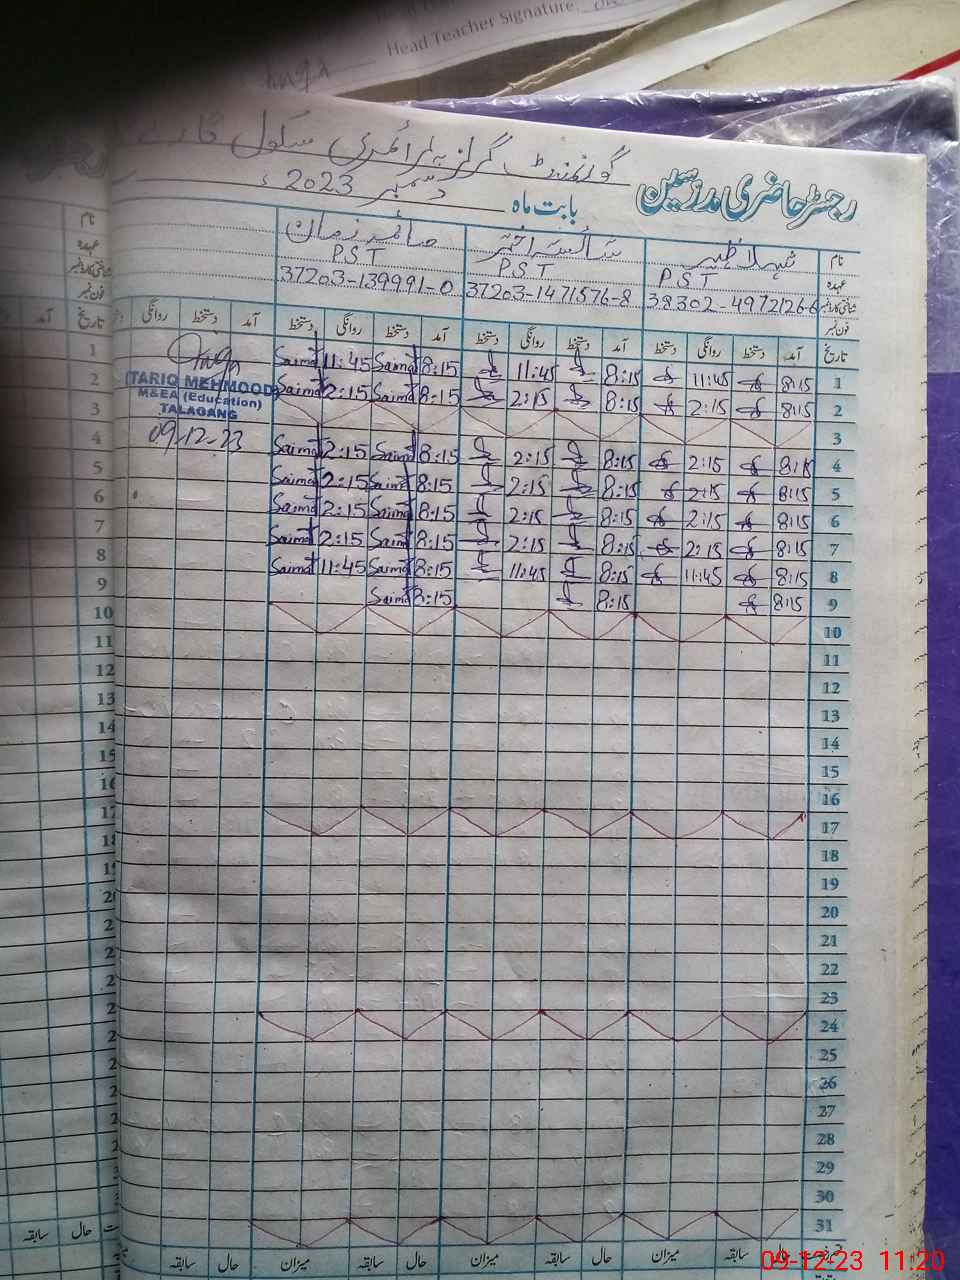 Head Teacher Signature:
گورنمنٹ گرلز پرائمری سکول
رجسٹر حاضری مدرسین
بابت ماہ دسمبر 2023ء
نام شہلا ظہیر صائمہ زمان
عہدہ PST PST PST
شناختی کارڈ نمبر 38302-4972126-6 37203-1471576-8 37203-139991-0
فون نمبر
تاریخ آمد دستخط روانگی دستخط آمد دستخط روانگی دستخط آمد دستخط روانگی دستخط آمد دستخط روانگی
1 8:15 11:45 8:15 11:45 8:15 Saima 11:45 Saima
2 8:15 2:15 8:15 2:15 8:15 Saima 2:15 Saima
3
4 8:15 2:15 8:15 2:15 8:15 Saima 2:15 Saima
5 8:15 2:15 8:15 2:15 8:15 Saima 2:15 Saima
6 8:15 2:15 8:15 2:15 8:15 Saima 2:15 Saima
7 8:15 2:15 8:15 2:15 8:15 Saima 2:15 Saima
8 8:15 11:45 8:15 11:45 8:15 Saima 11:45 Saima
9 8:15 8:15 8:15 Saima
10
11
12
13
14
15
16
17
18
19
20
21
22
23
24
25
26
27
28
29
30
31
سابقہ حال میزان سابقہ حال میزان سابقہ حال
(TARIQ MEHMOOD)
M&EA (Education)
TALAGANG
09-12-23
نام
عہدہ
شناختی کارڈ نمبر
فون نمبر
تاریخ
آمد
1
2
3
4
5
6
7
8
9
10
11
12
13
14
حال سابقہ
09-12-23 11:20